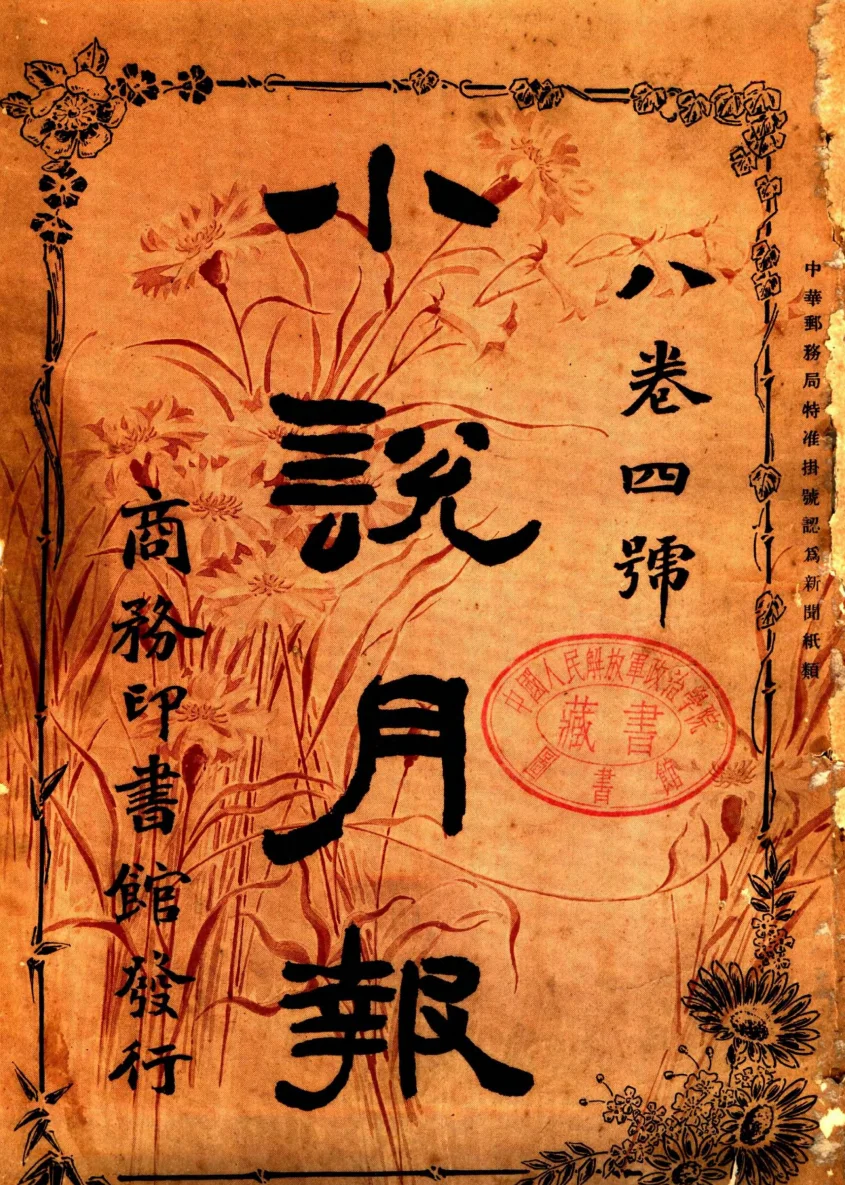 中華郵務局特准掛號認爲新聞紙類
八卷四號
小說月報
商務印書館發行
中國人民解放軍政治學院
藏書
圖書館